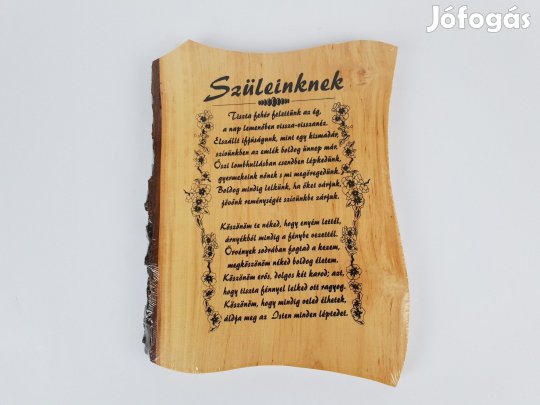 Jófogás
Szüleinknek
Tiszta fehér felettünk az ég,
a nap lemenőben vissza-visszanéz.
Elszállt ifjúságunk, mint egy kismadár,
szívünkben az emlék boldog ünnep már.
Őszi lombhullásban csendben lépkedünk,
gyermekeink nőnek s mi megöregedünk.
Boldog mindig lelkünk, ha őket várjuk,
jövőnk reménységét szívünkbe zárjuk.
Köszönöm te néked, hogy enyém lettél,
árnyékból mindig a fénybe vezettél.
Örvények sodrában fogtad a kezem,
megköszönöm néked boldog életem.
Köszönöm erős, dolgos két karod; azt,
hogy tiszta fénnyel lelked ott ragyog.
Köszönöm, hogy mindig veled élhetek,
áldja meg az Isten minden léptedet.